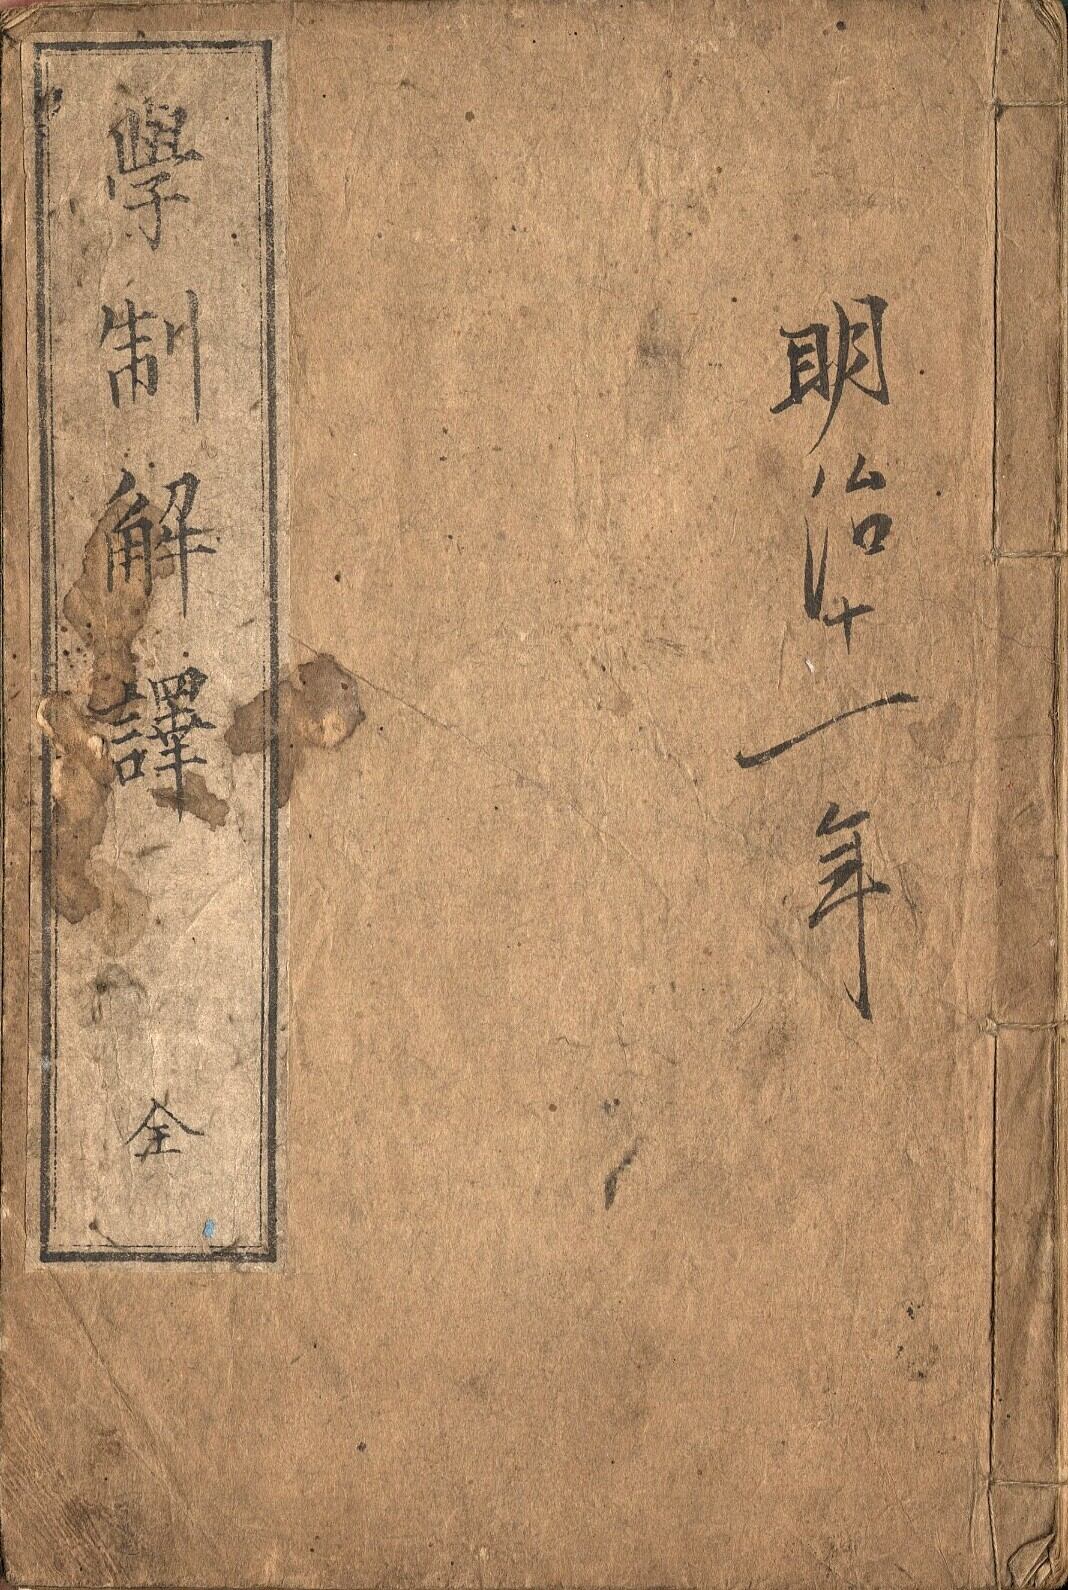 明治十一年
學制解譯 全